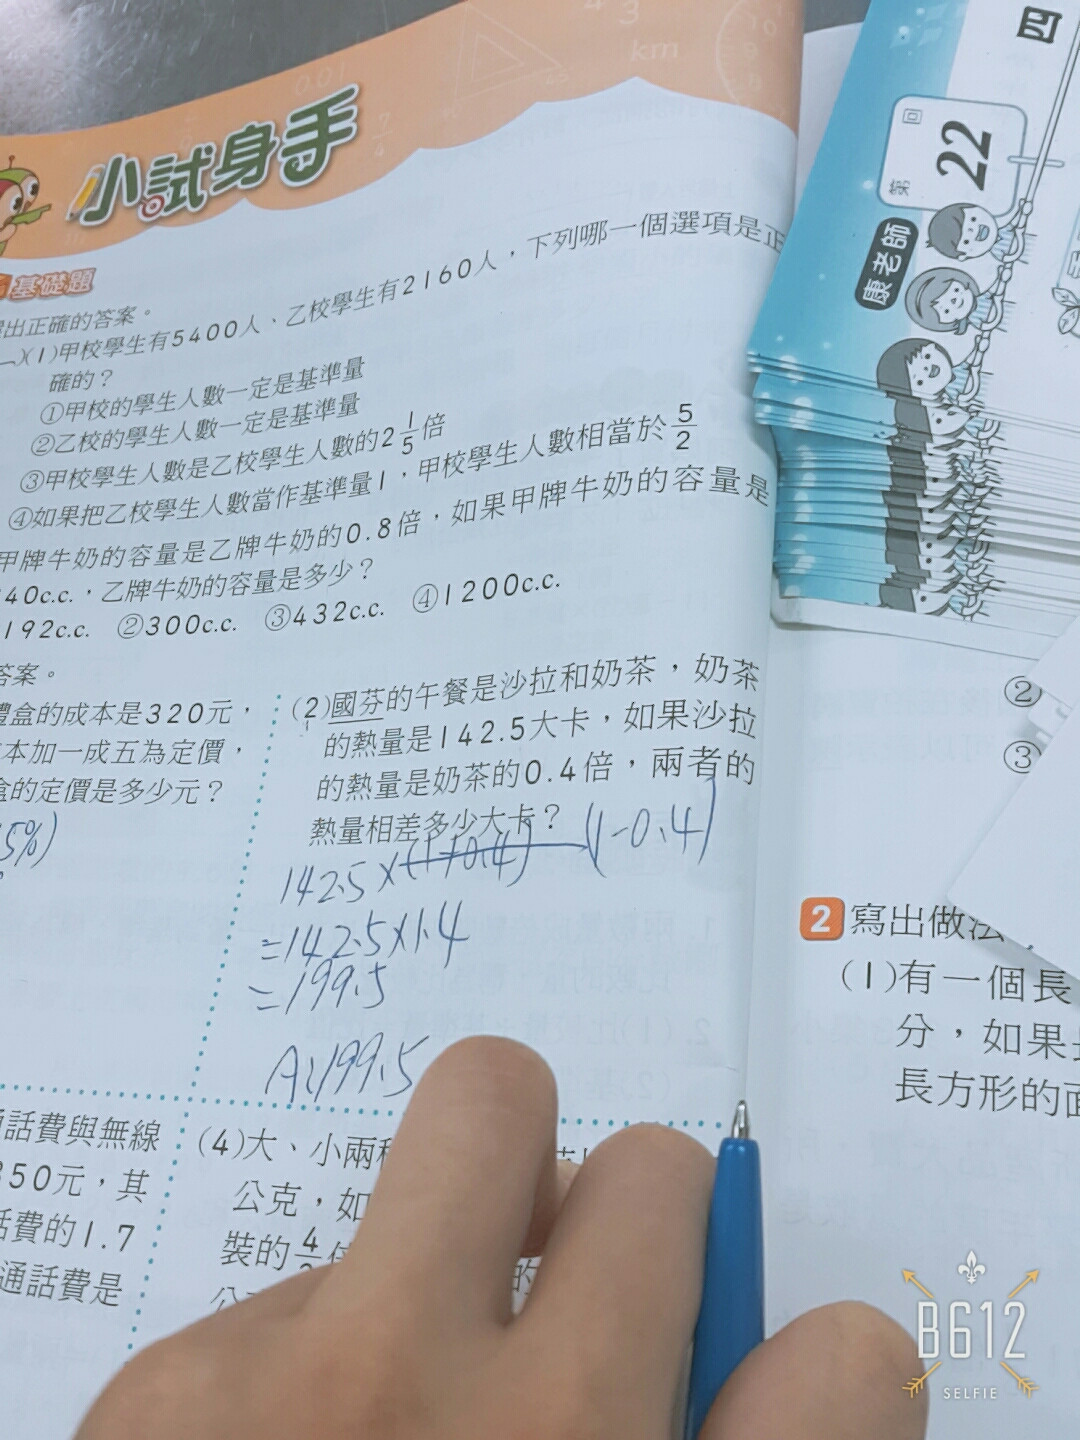 小試身手
基礎題
出正確的答案。
(1)甲校學生有5400人、乙校學生有2160人，下列哪一個選項是正
確的？
①甲校的學生人數一定是基準量
②乙校的學生人數一定是基準量
③甲校學生人數是乙校學生人數的2 1/5倍
④如果把乙校學生人數當作基準量1，甲校學生人數相當於5/2
甲牌牛奶的容量是乙牌牛奶的0.8倍，如果甲牌牛奶的容量是
40c.c.，乙牌牛奶的容量是多少？
192c.c. ②300c.c. ③432c.c. ④1200c.c.
答案。
禮盒的成本是320元，
本加一成五為定價，
盒的定價是多少元？
5%)
(2)國芬的午餐是沙拉和奶茶，奶茶
的熱量是142.5大卡，如果沙拉
的熱量是奶茶的0.4倍，兩者的
熱量相差多少大卡？
142.5×(1+0.4) (1-0.4)
=142.5×1.4
=199.5
A:199.5
話費與無線
350元，其
話費的1.7
通話費是
(4)大、小兩
公克，如
裝的
的
公
四
第22回
康老師
②
③
2 寫出做法
(1)有一個長
分，如果
長方形的面
B612
SELFIE